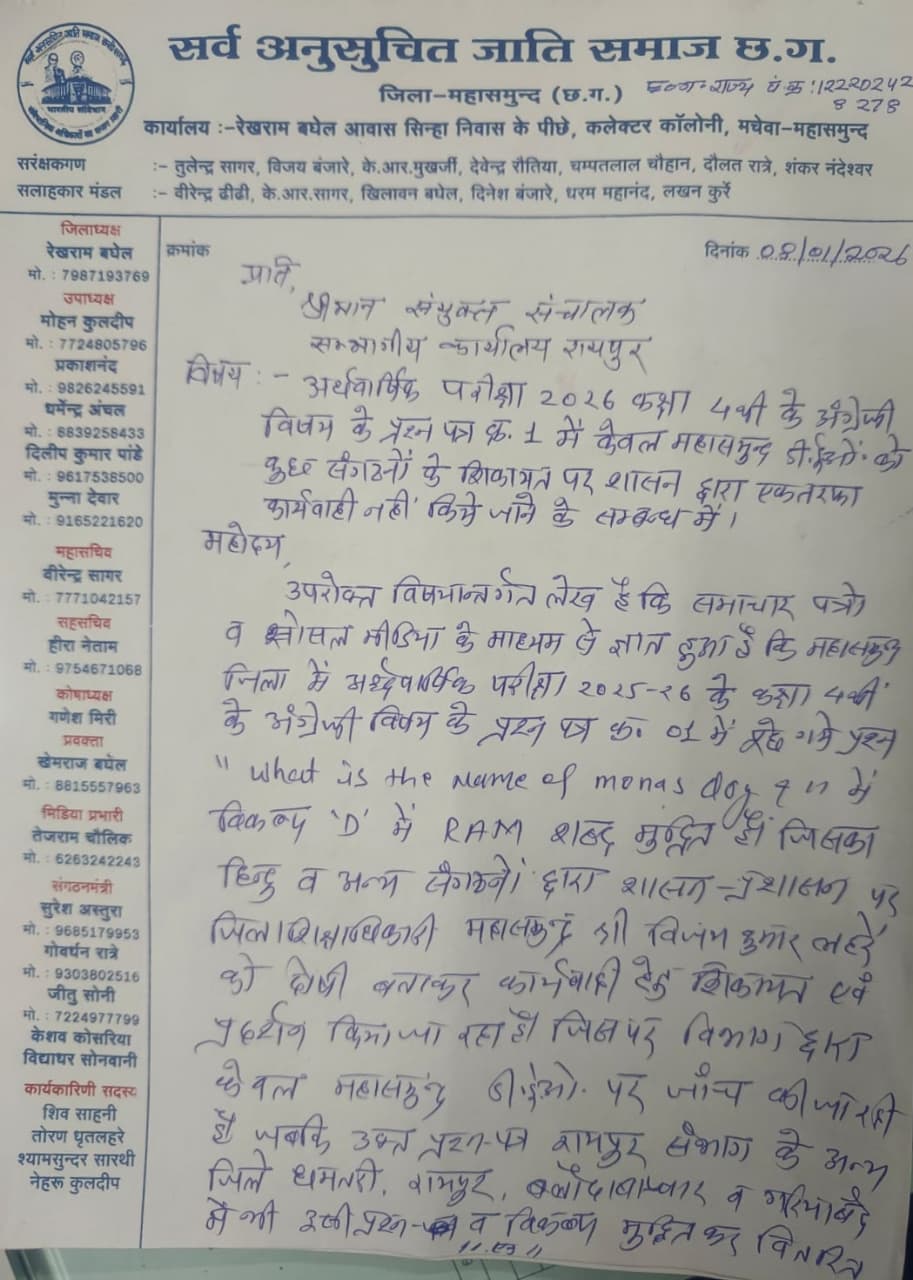 सर्व अनुसुचित जाति समाज छ.ग.
जिला-महासमुन्द (छ.ग.)
छ.ग. राज्य पं.क्र: 12220242
8278
कार्यालय :-रेखराम बघेल आवास सिन्हा निवास के पीछे, कलेक्टर कॉलोनी, मचेवा-महासमुन्द
सरंक्षकगण :- तुलेन्द्र सागर, विजय बंजारे, के.आर.मुखर्जी, देवेन्द्र रौतिया, चम्पतलाल चौहान, दौलत रात्रे, शंकर नंदेश्वर
सलाहकार मंडल :- वीरेन्द्र ढीढी, के.आर.सागर, खिलावन बघेल, दिनेश बंजारे, धरम महानंद, लखन कुर्रे
जिलाध्यक्ष
रेखराम बघेल
मो. : 7987193769
उपाध्यक्ष
मोहन कुलदीप
मो. : 7724805796
प्रकाशनंद
मो. : 9826245591
धर्मेन्द्र अंचल
मो. : 8839258433
दिलीप कुमार पांडे
मो. : 9617538500
मुन्ना देवार
मो. : 9165221620
महासचिव
वीरेन्द्र सागर
मो. : 7771042157
सहसचिव
हीरा नेताम
मो. : 9754671068
कोषाध्यक्ष
गणेश मिरी
प्रवक्ता
खेमराज बघेल
मो. : 8815557963
मिडिया प्रभारी
तेजराम चौलिक
मो. : 6263242243
संगठनमंत्री
सुरेश अस्तुरा
मो. : 9685179953
गोवर्धन रात्रे
मो. : 9303802516
जीतु सोनी
मो. : 7224977799
केशव कोसरिया
विद्याधर सोनवानी
कार्यकारिणी सदस्य
शिव साहनी
तोरण धृतलहरे
श्यामसुन्दर सारथी
नेहरू कुलदीप
क्रमांक
दिनांक 08/01/2026
प्रति,
श्रीमान संयुक्त संचालक
सम्भागीय कार्यालय रायपुर
विषय :- अर्धवार्षिक परीक्षा 2026 कक्षा 4थी के अंग्रेजी
विषय के प्रश्न पत्र क्र. 1 में केवल महासमुन्द डी.ईओ. को
कुछ संगठनों के शिकायत पर शासन द्वारा एकतरफा
कार्यवाही नहीं किये जाने के सम्बन्ध में।
महोदय,
उपरोक्त विषयान्तर्गत लेख है कि समाचार पत्रो
व सोसल मीडिया के माध्यम से ज्ञात हुआ है कि महासमुन्द
जिला में अर्धवार्षिक परीक्षा 2025-26 के कक्षा 4थीं
के अंग्रेजी विषय के प्रश्न पत्र क्र. 01 में पूछे गये प्रश्न
" What is the Name of monas dog ? " में
विकल्प 'D' में RAM शब्द मुद्रित है। जिसका
हिन्दु व अन्य संगठनों द्वारा शासन-प्रशासन पर
जिला शिक्षाधिकारी महासमुन्द श्री विजय कुमार लहरे
को दोषी बताकर कार्यवाही हेतु शिकायत एवं
प्रदर्शन किया जा रहा है। जिस पर विभाग द्वारा
केवल महासमुन्द डी.ईओ. पर जाँच की जा रही
है जबकि उक्त प्रश्न-पत्र रायपुर संभाग के अन्य
जिले धमतरी, रायपुर, बलौदाबाजार व गरियाबंद
में भी इसी प्रश्न व विकल्प मुद्रित कर वितरित